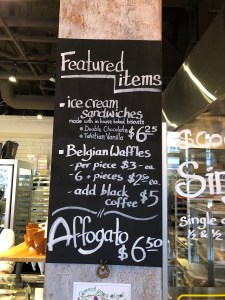 Featured
items
• ice cream
sandwiches
made with in house baked biscuits
• Double Chocolate
• Tahitian Vanilla
$6.25
• Belgian Waffles
- per piece $3 - ea.
- 6 + pieces $2.50 ea.
- add black
coffee $5
Affogato
$6.50
SCO
Sin
Single
½ & ½